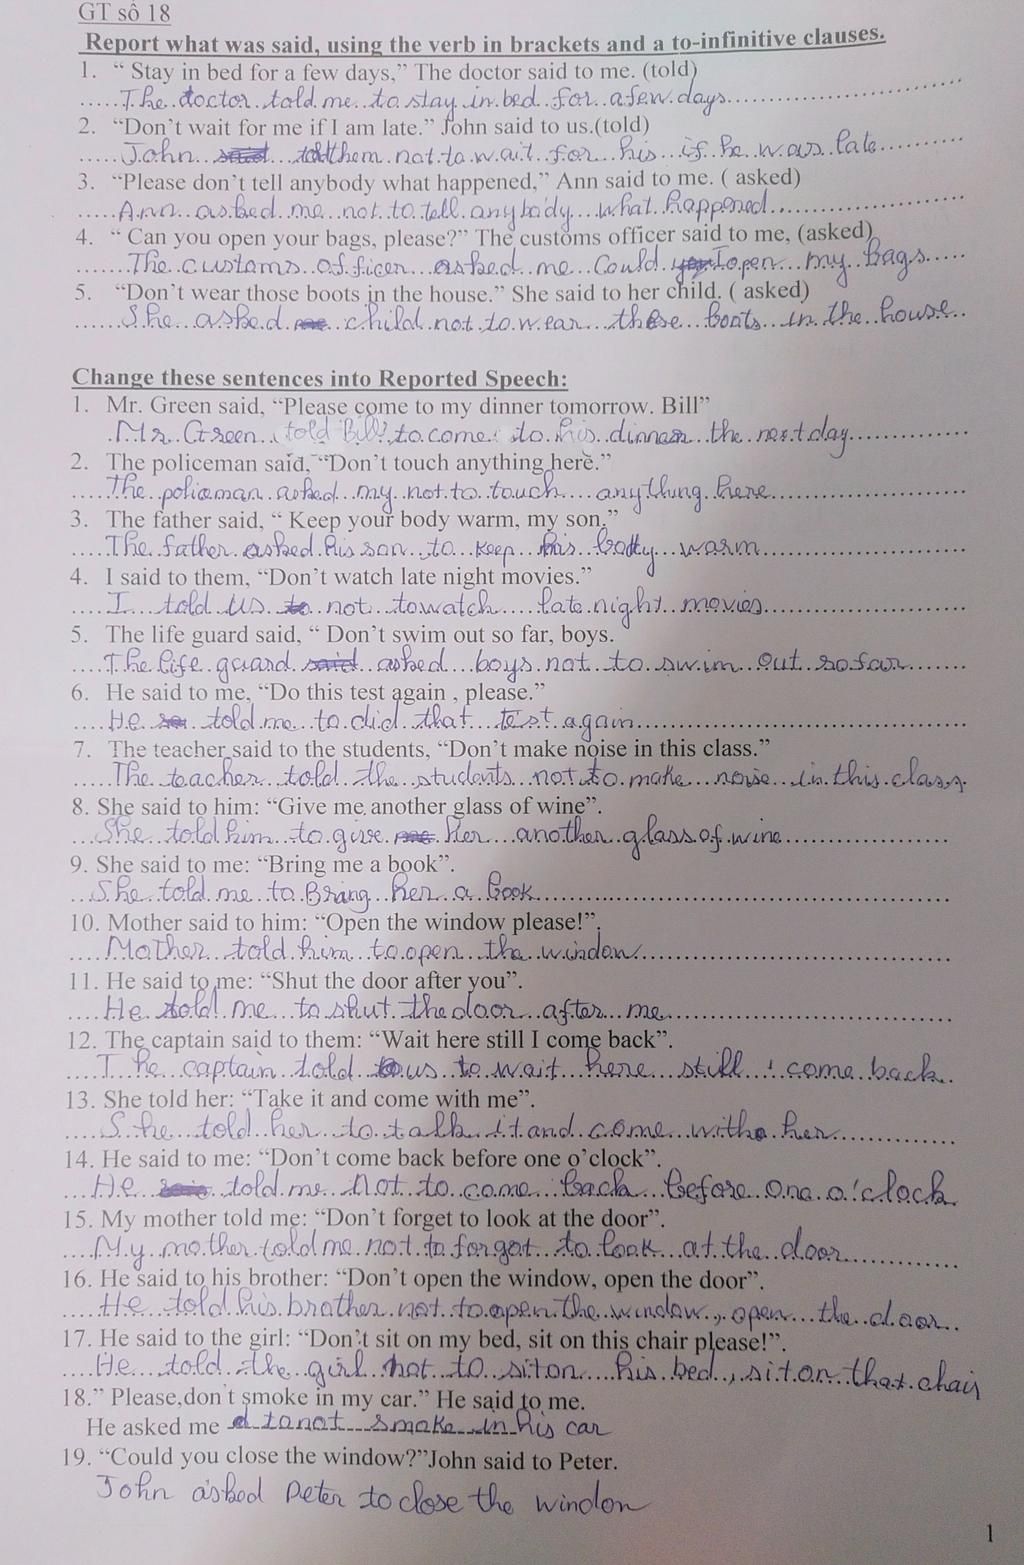 GT số 18
Report what was said, using the verb in brackets and a to-infinitive clauses.
1. “ Stay in bed for a few days,” The doctor said to me. (told)
The doctor told me to stay in bed for a few days
2. “Don’t wait for me if I am late.” John said to us.(told)
John said told them not to wait for his if he was late
3. “Please don’t tell anybody what happened,” Ann said to me. ( asked)
Ann asked me not to tell anybody what happened
4. “ Can you open your bags, please?” The customs officer said to me, (asked)
The customs officer asked me could you I open my bags
5. “Don’t wear those boots in the house.” She said to her child. ( asked)
She asked me child not to wear those boots in the house
Change these sentences into Reported Speech:
1. Mr. Green said, “Please come to my dinner tomorrow. Bill”
Mr. Green told Bill to come to his dinner the next day
2. The policeman said, “Don’t touch anything here.”
The policeman asked my not to touch anything here
3. The father said, “ Keep your body warm, my son.”
The father asked his son to keep his body warm
4. I said to them, “Don’t watch late night movies.”
I told us to not to watch late night movies
5. The life guard said, “ Don’t swim out so far, boys.
The life guard said asked boys not to swim out so far
6. He said to me, “Do this test again , please.”
He told me to did that test again
7. The teacher said to the students, “Don’t make noise in this class.”
The teacher told the students not to make noise in this class
8. She said to him: “Give me another glass of wine”.
She told him to give me her another glass of wine
9. She said to me: “Bring me a book”.
She told me to Bring her a book
10. Mother said to him: “Open the window please!”.
Mother told him to open the window
11. He said to me: “Shut the door after you”.
He told me to shut the door after me
12. The captain said to them: “Wait here still I come back”.
The captain told us to wait here still i come back
13. She told her: “Take it and come with me”.
She told her to talk it and come with her
14. He said to me: “Don’t come back before one o’clock”.
He said told me not to come back before one o'clock
15. My mother told me: “Don’t forget to look at the door”.
My mother told me not to forgot to look at the door
16. He said to his brother: “Don’t open the window, open the door”.
He told his brother not to open the window, open the door
17. He said to the girl: “Don’t sit on my bed, sit on this chair please!”.
He told the girl not to sit on his bed, sit on that chair
18.” Please,don’t smoke in my car.” He said to me.
He asked me to not smoke in his car
19. “Could you close the window?”John said to Peter.
John asked Peter to close the window
1